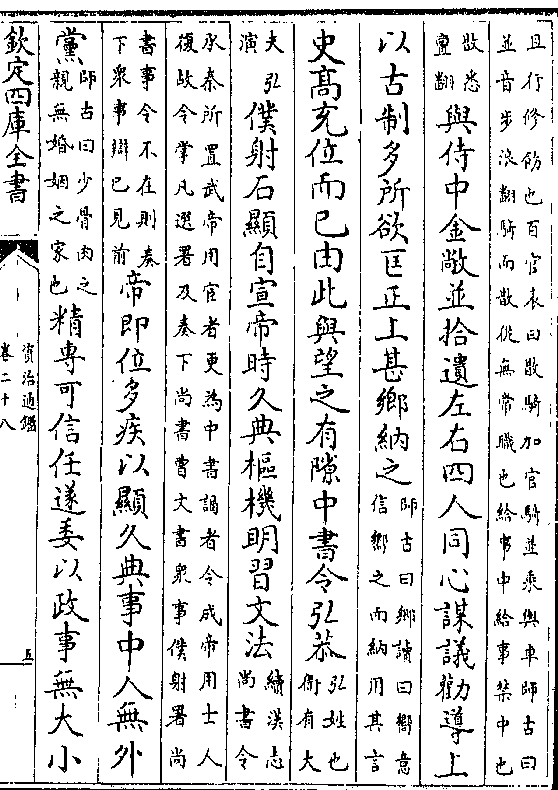 且行修飭也百官表曰散騎加官騎並乗輿車師古曰
並音步浪翻騎而散從無常職也給事中給事禁中也
散悉亶翻與侍中金敞並拾遺左右四人同心謀議勸導上
以古制多所欲匡正上甚鄉納之師古曰鄉讀曰嚮意信嚮之而納用其言
史高充位而已由此與望之有隙中書令弘恭弘姓也衛有大
夫弘演僕射石顯自宣帝時久典樞機明習文法續漢志尚書令
承秦所置武帝用宦者更為中書謁者令成帝用士人
復故令掌凡選署及奏下尚書曹文書衆事僕射署尚
書事令不在則奏下衆事辯已見前帝即位多疾以顯久典事中人無外
黨師古曰少骨肉之親無婚姻之家也精專可信任遂委以政事無大小
欽定四庫全書
資治通鑑
卷二十八
五